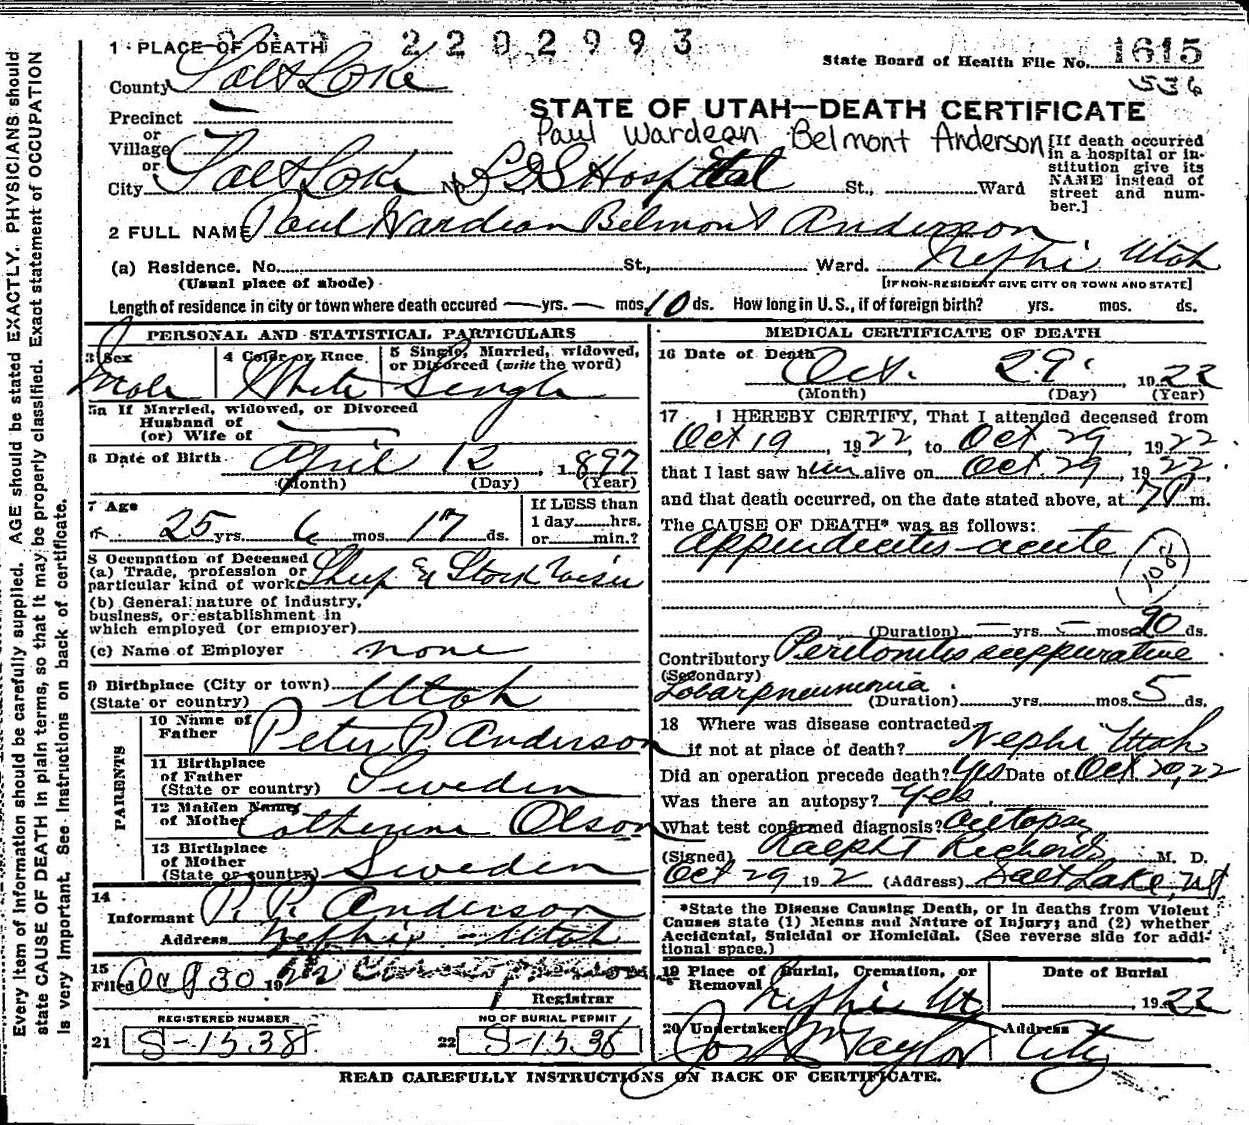 2202993
1 PLACE OF DEATH
State Board of Health File No. 1615
536
County Salt Lake
STATE OF UTAH—DEATH CERTIFICATE
Precinct
or
Paul Wardean Belmont Anderson
Village
or
City Salt Lake No. LDS Hospital St., Ward
[If death occurred in a hospital or in-
stitution give its
NAME instead of
street and num-
ber.]
2 FULL NAME Paul Wardean Belmont Anderson
(a) Residence. No. St., Ward. Nephi Utah
(Usual place of abode) [IF NON-RESIDENT GIVE CITY OR TOWN AND STATE]
Length of residence in city or town where death occured — yrs. — mos. 10 ds. How long in U. S., if of foreign birth? yrs. mos. ds.
PERSONAL AND STATISTICAL PARTICULARS
3 Sex Male
4 Color or Race. White
5 Single, Married, widowed, or Divorced (write the word) Single
5a If Married, widowed, or Divorced
Husband of
(or) Wife of —
6 Date of Birth April 12, 1897
(Month) (Day) (Year)
7 Age 25 yrs. 6 mos. 17 ds.
If LESS than
1 day hrs.
or min.?
8 Occupation of Deceased
(a) Trade, profession or
particular kind of work Sheep & Stock raiser
(b) General nature of industry,
business, or establishment in
which employed (or employer)
(c) Name of Employer none
9 Birthplace (City or town)
(State or country) Utah
PARENTS
10 Name of Father Peter P. Anderson
11 Birthplace
of Father
(State or country) Sweden
12 Maiden Name
of Mother Catherine Olson
13 Birthplace
of Mother
(State or country) Sweden
14
Informant P. P. Anderson
Address Nephi - Utah
15
Filed Oct 30 1922
Registrar
REGISTERED NUMBER
21 S-1538
NO OF BURIAL PERMIT
22 S-1536
MEDICAL CERTIFICATE OF DEATH
16 Date of Death Oct. 29, 1922
(Month) (Day) (Year)
17 I HEREBY CERTIFY, That I attended deceased from
Oct 19, 1922, to Oct 29, 1922.
that I last saw him alive on Oct. 29, 1922.
and that death occurred, on the date stated above, at 7 P m.
The CAUSE OF DEATH* was as follows:
Appendicitis - acute
108
(Duration) — yrs. — mos. 20 ds.
Contributory Peritonitis suppurative
(Secondary)
Lobar pneumonia (Duration) yrs. mos. 5 ds.
18 Where was disease contracted
if not at place of death? Nephi Utah
Did an operation precede death? Yes Date of Oct 20, 22
Was there an autopsy? Yes
What test confirmed diagnosis? Autopsy
(Signed) Ralph T Richards M. D.
Oct 29 192 2 (Address) Salt Lake, Ut
*State the Disease Causing Death, or in deaths from Violent
Causes state (1) Means and Nature of Injury; and (2) whether
Accidental, Suicidal or Homicidal. (See reverse side for addi-
tional space.)
19 Place of Burial, Cremation, or
Removal Nephi Ut
Date of Burial
1922
20 Undertaker Jos Wm Taylor
Address City
READ CAREFULLY INSTRUCTIONS ON BACK OF CERTIFICATE.
Every item of information should be carefully supplied. AGE should be stated EXACTLY. PHYSICIANS should
state CAUSE OF DEATH in plain terms, so that it may be properly classified. Exact statement of OCCUPATION
is very important. See Instructions on back of certificate.